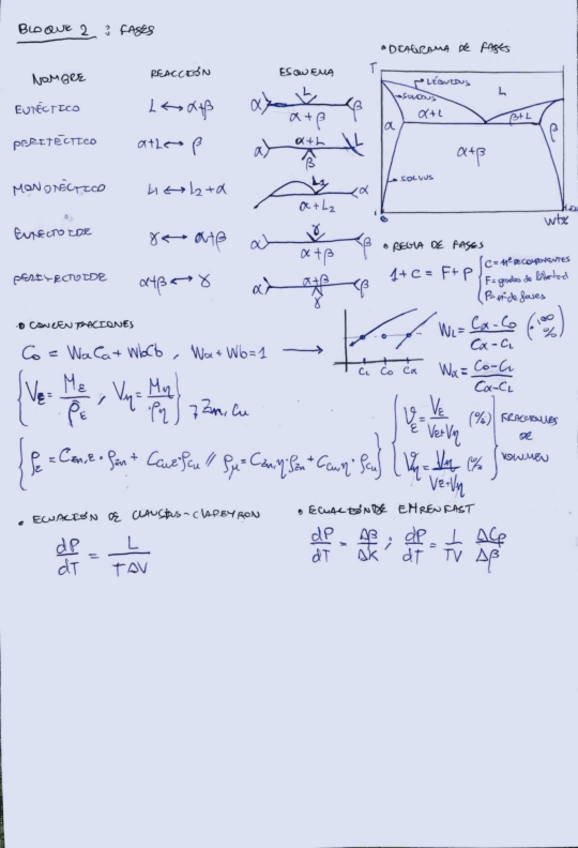 BLOQUE 2 : FASES
• DIAGRAMA DE FASES
NOMBRE REACCIÓN ESQUEMA
EUTÉCTICO L ↔ α+β α L β α+β
PERITÉCTICO α+L ↔ β α α+L L β
MONOTÉCTICO L₁ ↔ L₂+α L₁ α α+L₂
EUTECTOIDE γ ↔ α+β α γ β α+β
PERITECTOIDE α+β ↔ γ α α+β β γ
T
LÍQUIDUS
SOLIDUS
L
α α+L β+L β
α+β
SOLVUS
wt%
• REGLA DE FASES
1+C = F+P
C = nº de componentes
F = grados de libertad
P = nº de fases
• CONCENTRACIONES
C₀ = WaCa + WbCb , Wa + Wb = 1 →
CL C₀ Cα
WL = (Cα - C₀)/(Cα - CL) (·100 %)
Wα = (C₀ - CL)/(Cα - CL)
Vε = Mε/ρε , Vη = Mη/ρη } Zn, Cu
ρε = CZn,ε · ρZn + CCu,ε · ρCu // ρμ = CZn,η · ρZn + CCu,η · ρCu
Vε = Vε/(Vε+Vη) (%)
Vη = Vη/(Vε+Vη) (%)
FRACCIONES
DE
VOLUMEN
• ECUACIÓN DE CLAUSIUS-CLAPEYRON
dP/dT = L/(TΔV)
• ECUACIÓN DE EHRENFAST
dP/dT = Δβ/ΔK ; dP/dT = 1/(TV) ΔCp/Δβ